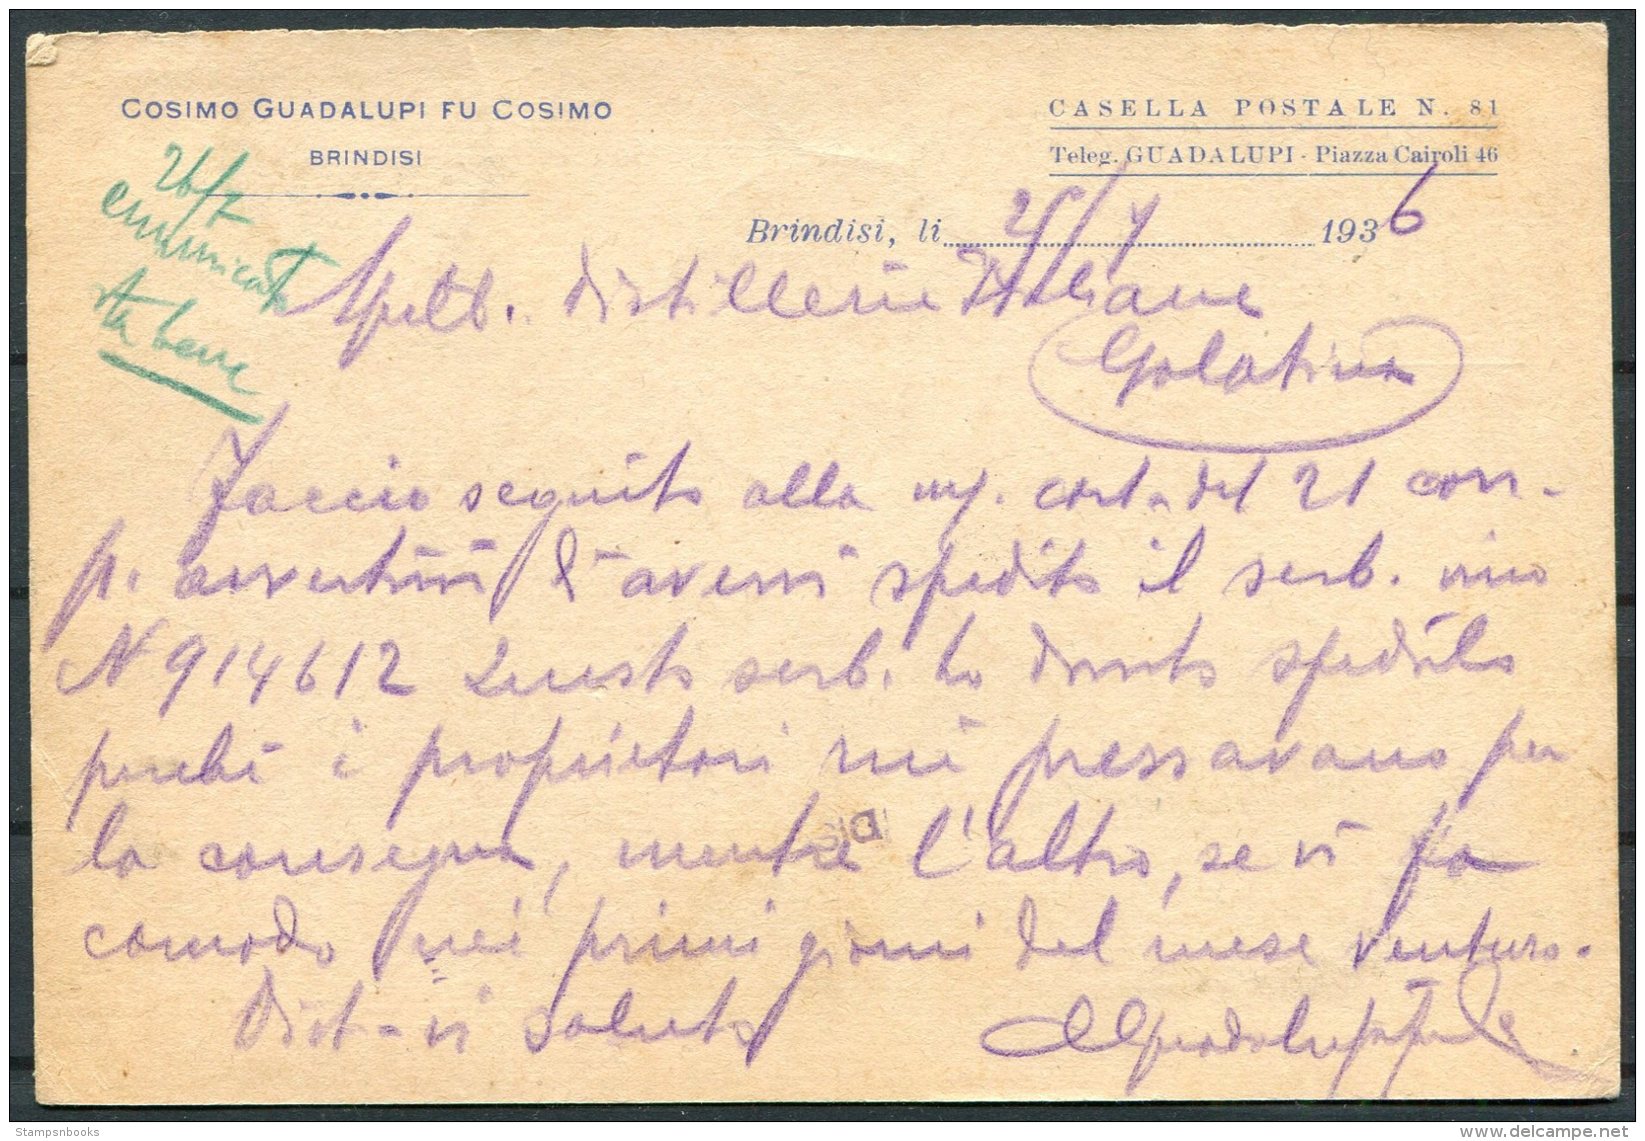 COSIMO GUADALUPI FU COSIMO
BRINDISI
CASELLA POSTALE N. 81
Teleg. GUADALUPI - Piazza Cairoli 46
Brindisi, li 25/7 1936
26/7
comunicato
sta bene
Spett. Distillerie Italiane
Galatina
Faccio seguito alla my. cart. del 21 corr.
p. avvertirvi d'avervi spedito il serb. vino
N 914612 Questo serb. ho dovuto spedirlo
perchè i proprietori mi pressavano per
la consegna, mentre l'altro, se vi fa
comodo nei primi giorni del mese venturo.
Dist. vi saluto
Guadalupi
Stampsnbooks
www.delcampe.net